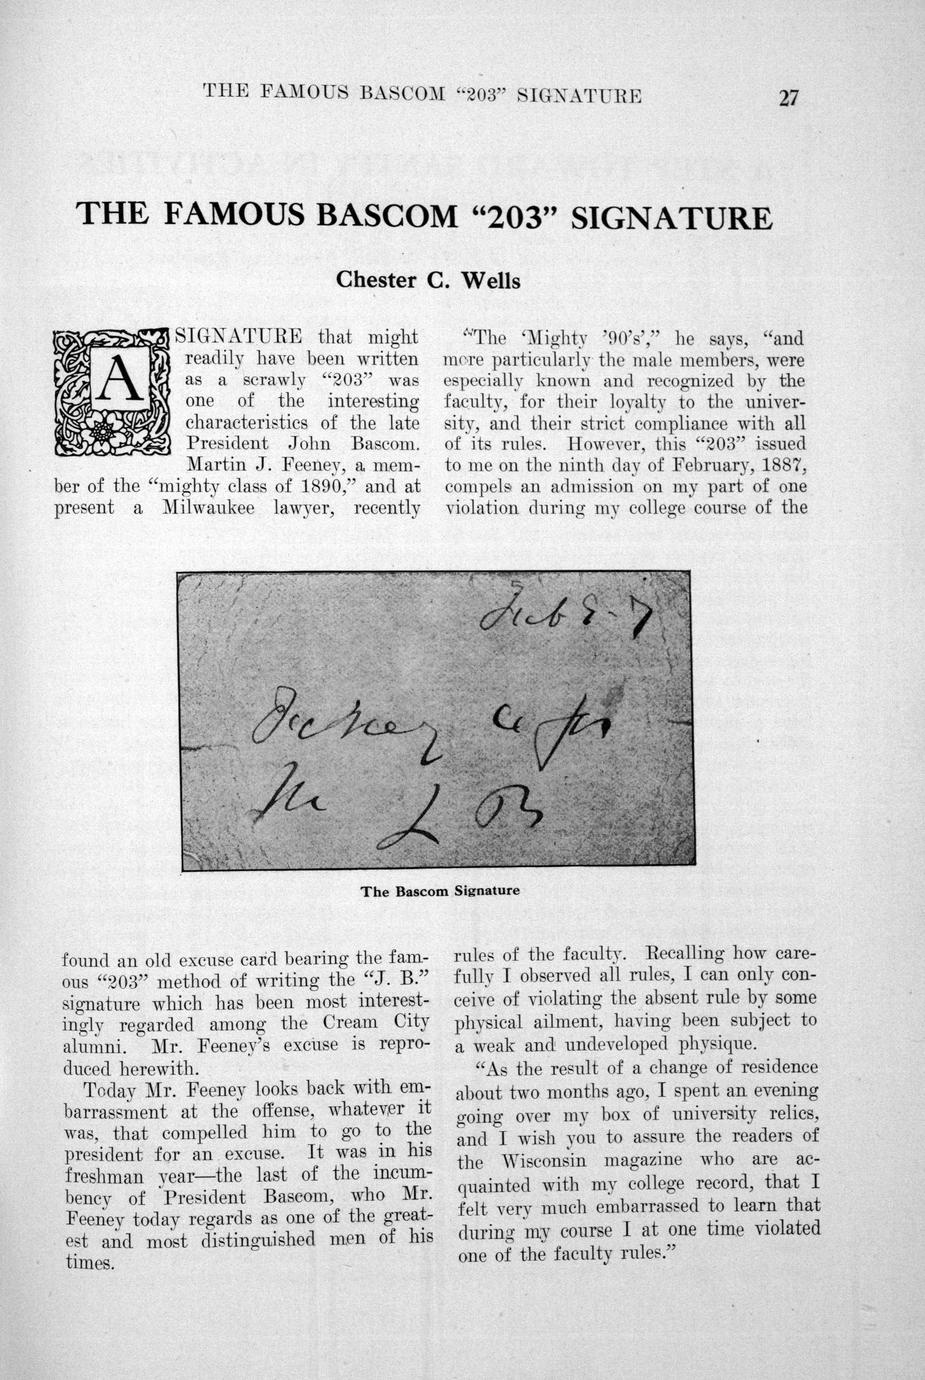 THE FAMOUS BASCOM “203” SIGNATURE 27
THE FAMOUS BASCOM “203” SIGNATURE
Chester C. Wells
A SIGNATURE that might
readily have been written
as a scrawly “203” was
one of the interesting
characteristics of the late
President John Bascom.
Martin J. Feeney, a mem-
ber of the “mighty class of 1890,” and at
present a Milwaukee lawyer, recently
“The ‘Mighty ’90’s’,” he says, “and
more particularly the male members, were
especially known and recognized by the
faculty, for their loyalty to the univer-
sity, and their strict compliance with all
of its rules. However, this “203” issued
to me on the ninth day of February, 1887,
compels an admission on my part of one
violation during my college course of the
Feb 9-7
J B
The Bascom Signature
found an old excuse card bearing the fam-
ous “203” method of writing the “J. B.”
signature which has been most interest-
ingly regarded among the Cream City
alumni. Mr. Feeney’s excuse is repro-
duced herewith.
Today Mr. Feeney looks back with em-
barrassment at the offense, whatever it
was, that compelled him to go to the
president for an excuse. It was in his
freshman year—the last of the incum-
bency of President Bascom, who Mr.
Feeney today regards as one of the great-
est and most distinguished men of his
times.
rules of the faculty. Recalling how care-
fully I observed all rules, I can only con-
ceive of violating the absent rule by some
physical ailment, having been subject to
a weak and undeveloped physique.
“As the result of a change of residence
about two months ago, I spent an evening
going over my box of university relics,
and I wish you to assure the readers of
the Wisconsin magazine who are ac-
quainted with my college record, that I
felt very much embarrassed to learn that
during my course I at one time violated
one of the faculty rules.”